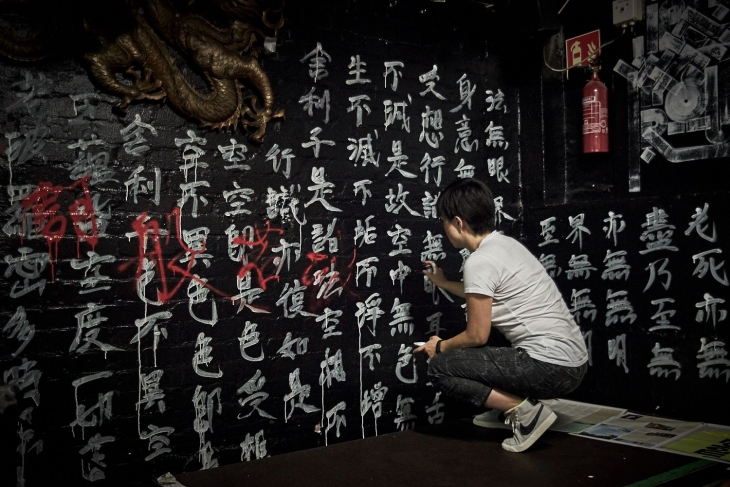 若波羅蜜多時
五蘊皆空度一切苦
舍利子色不異空
空不異色色即
空空即是色受想
行識亦復如是
舍利子是諸法空相不
生不滅不垢不淨不增
不減是故空中無色無
受想行識無眼耳鼻舌
身意無
法無眼界
至無
界無無
亦無無明
盡乃至無
老死亦無
訶般若波